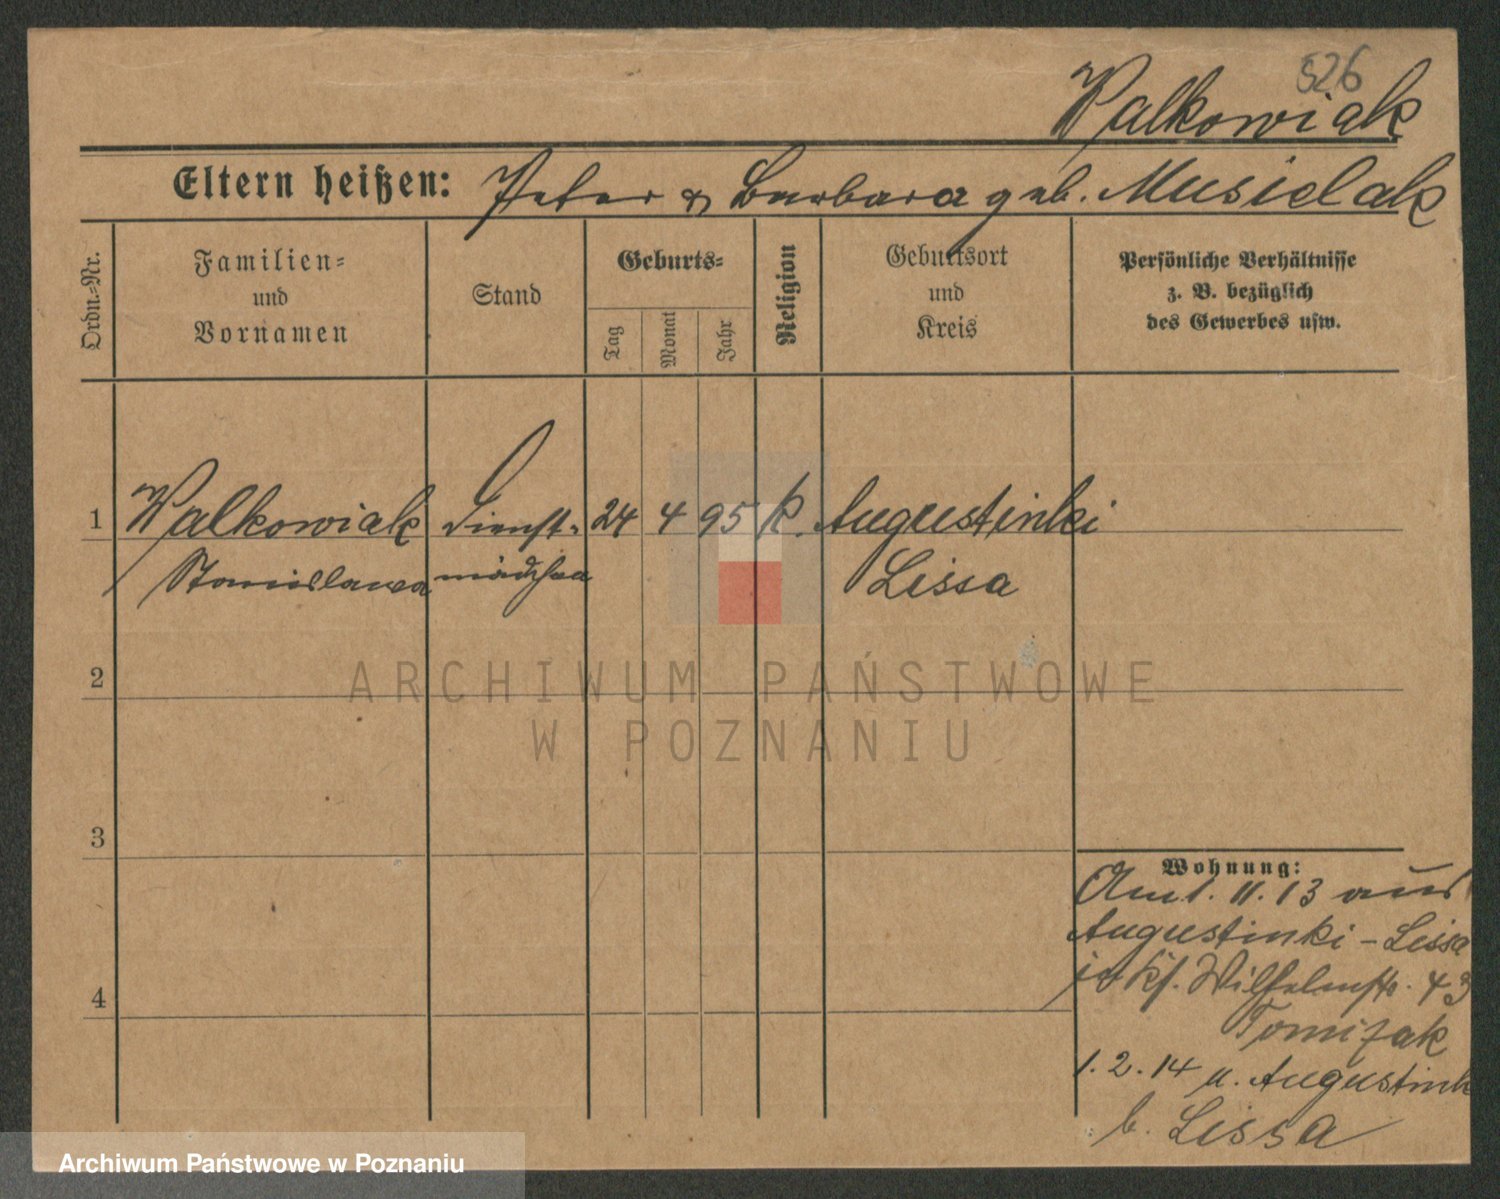 526
Walkowiak
Eltern heißen: Peter & Barbara geb. Musielak
Ordn.=Nr.
Familien=
und
Vornamen
Stand
Geburts=
Tag
Monat
Jahr
Religion
Geburtsort
und
Kreis
Persönliche Verhältnisse
z. B. bezüglich
des Gewerbes usw.
1 Walkowiak Dienst- 24 4 95 k. Augustinki
Stanislawa mädchen Lissa
2
3
4
Wohnung:
Am 1. 11. 13 aus
Augustinki - Lissa
Wilhelmstr. 43
Tomizak
1. 2. 14 n. Augustink
b. Lissa
ARCHIWUM PAŃSTWOWE
W POZNANIU
Archiwum Państwowe w Poznaniu